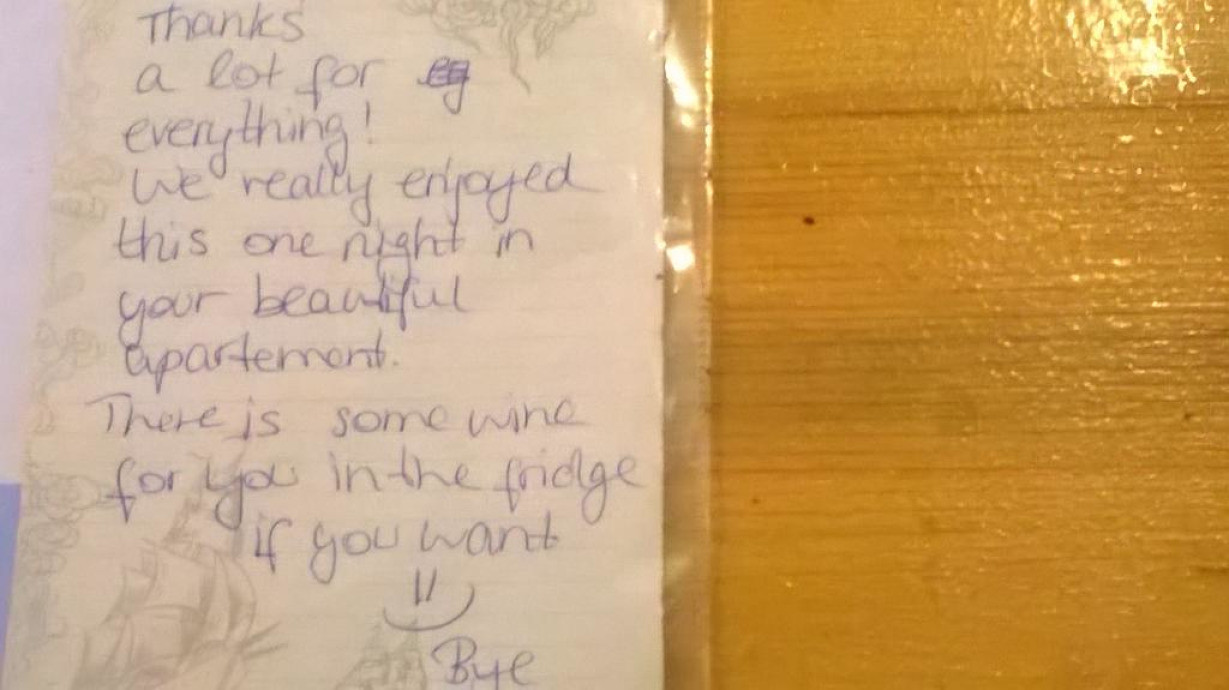 Thanks
a lot for
everything!
We really enjoyed
this one night in
your beautiful
apartement.
There is some wine
for you in the fridge
if you want
Bye